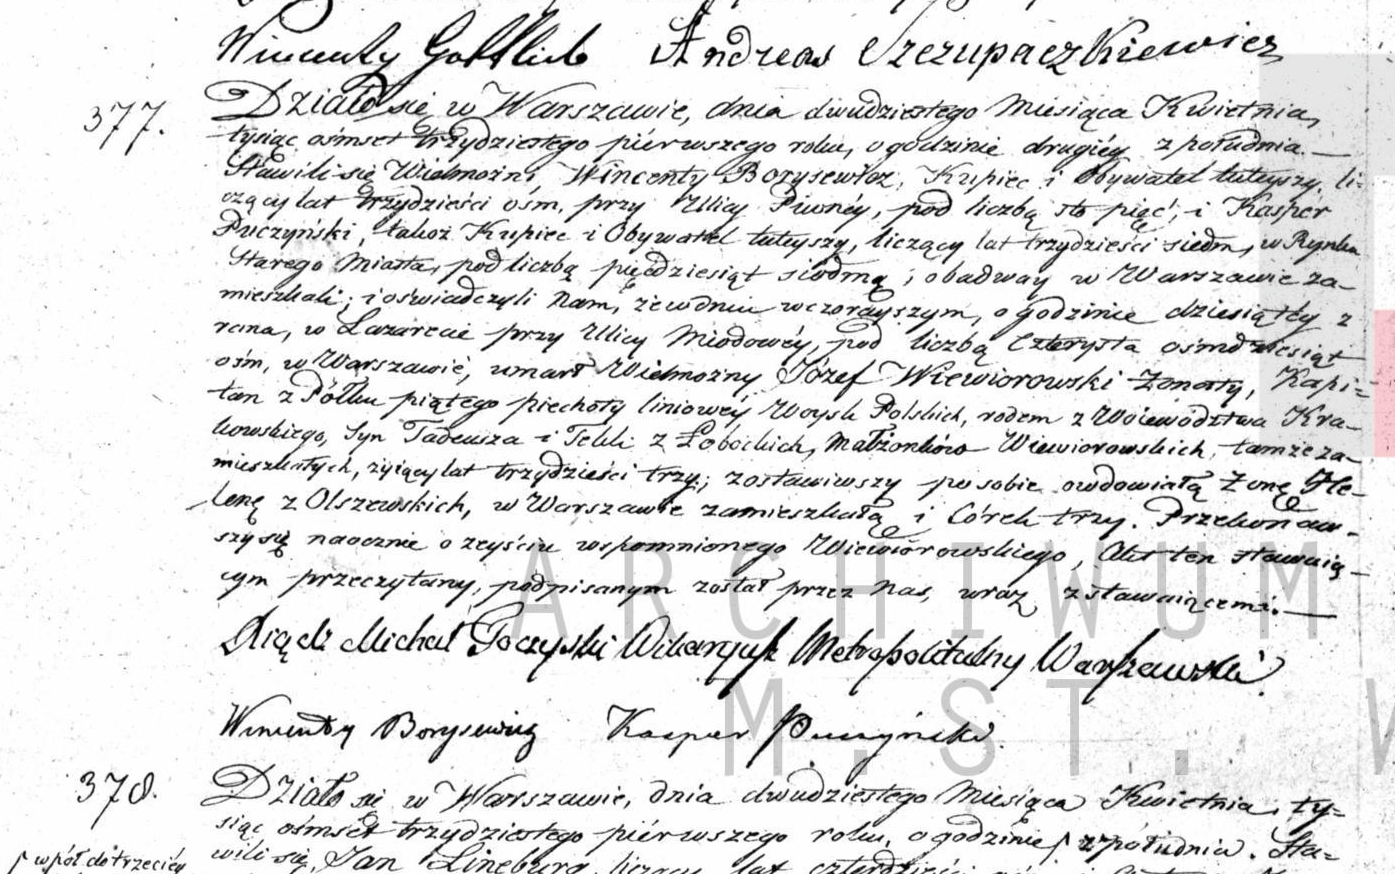 Wincenty Gottlieb Andreas Szczupaczkiewicz
377. Działo się w Warszawie, dnia dwudziestego Miesiąca Kwietnia,
tysiąc ośmset trzydziestego piérwszego roku, o godzinie drugiéy z południa.—
Stawili się Wielmożni, Wincenty Borysewicz, Kupiec i Obywatel tuteyszy, li-
czący lat trzydzieści ośm, przy Ulicy Piwnéy, pod liczbą sto pięć, i Kasper
Puczyński, takoż Kupiec i Obywatel tuteyszy, liczący lat trzydzieści siedm, w Rynku
Starego Miasta, pod liczbą pięćdziesiąt siódmą; obadway w Warszawie za-
mieszkali; i oświadczyli Nam, że w dniu wczorayszym, o godzinie dziesiątéy z
rana, w Lazarecie przy Ulicy Miodowéy, pod liczbą Czterysta ośmdziesiąt
ośm, w Warszawie, umarł Wielmożny Józef Wiewiorowski Żonaty, Kapi-
tan z Półku piątego piechoty liniowéy Woysk Polskich, rodem z Woiewództwa Kra-
kowskiego, Syn Tadeusza i Tekli z Łobockich, Małżonków Wiewiorowskich, tamże za-
mieszkałych, żyiący lat trzydzieści trzy; zostawiwszy po sobie owdowiałą Żonę He-
lenę z Olszewskich, w Warszawie zamieszkałą i Córek trzy. Przekonaw-
szy się naocznie o zeyściu wspomnionego Wiewiórowskiego, Akt ten stawaią-
cym przeczytany, podpisanym został przez Nas, wraz z stawaiącemi.—
Xiądz Michał Toczyski Wikaryusz Metropolitalny Warszawski
Wincenty Borysewicz Kasper Puczyński
378. Działo się w Warszawie, dnia dwudziestego Miesiąca Kwietnia, ty-
siąc ośmset trzydziestego piérwszego roku, o godzinie z południa. Sta-
wpół do trzeciéy
wili się, Jan Lineburg, liczący lat czterdzieści
ARCHIWUM
M.ST. W